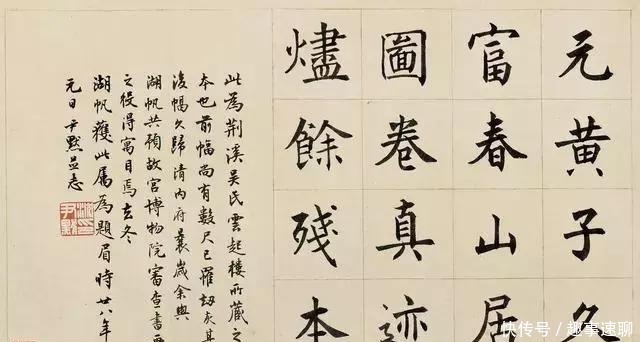 元黄子久
富春山居
圖卷真迹
燼餘殘本
此為荆溪吴氏雲起樓所藏之
本也前幅尚有數尺已罹劫灰其
後幅久歸清内府曩歲余與
湖帆共預故宫博物院審查書畫
之役得寓目焉去冬
湖帆獲此属為題眉時廿八年
元日尹默並志
快传号 / 趣事速聊